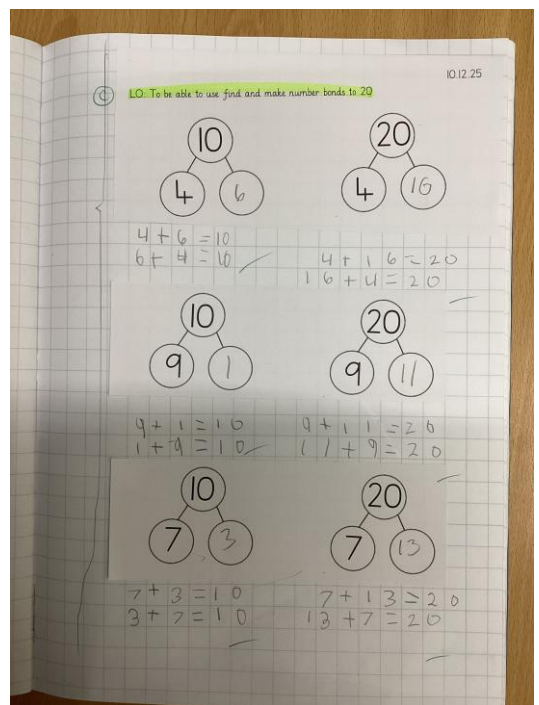 10.12.25
C LO: To be able to use find and make number bonds to 20
10 20
4 6 4 16
4 + 6 = 10
6 + 4 = 10
4 + 16 = 20
16 + 4 = 20
10 20
9 1 9 11
9 + 1 = 10 9 + 11 = 20
1 + 9 = 10 11 + 9 = 20
10 20
7 3 7 13
7 + 3 = 10 7 + 13 = 20
3 + 7 = 10 13 + 7 = 20